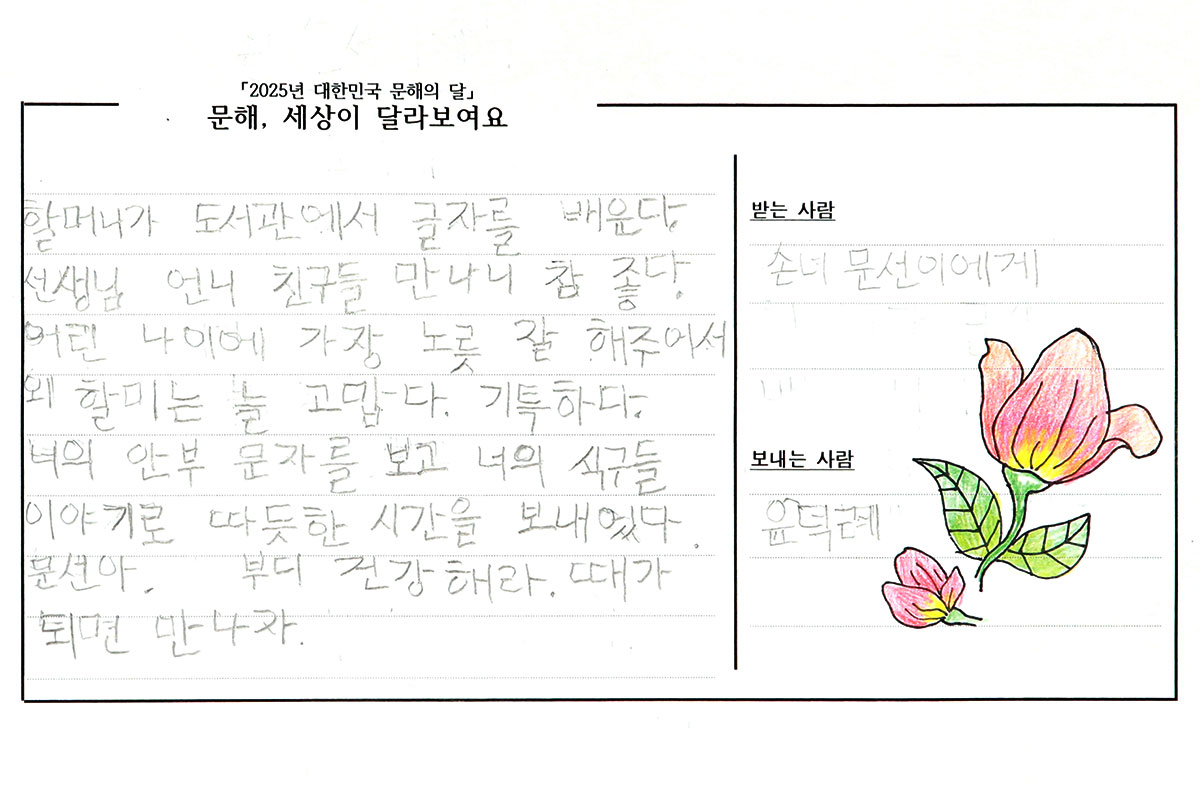 「2025년 대한민국 문해의 달」
문해, 세상이 달라보여요
할머니가 도서관에서 글자를 배운다.
선생님 언니 친구들 만나니 참 좋다.
어린 나이에 가장 노릇 잘 해주어서
왜 할미는 늘 고맙다. 기특하다.
너의 안부 문자를 보고 너의 식구들
이야기로 따듯한 시간을 보내었다.
문선아. 부디 건강해라. 때가
되면 만나자.
받는 사람
손녀 문선이에게
보내는 사람